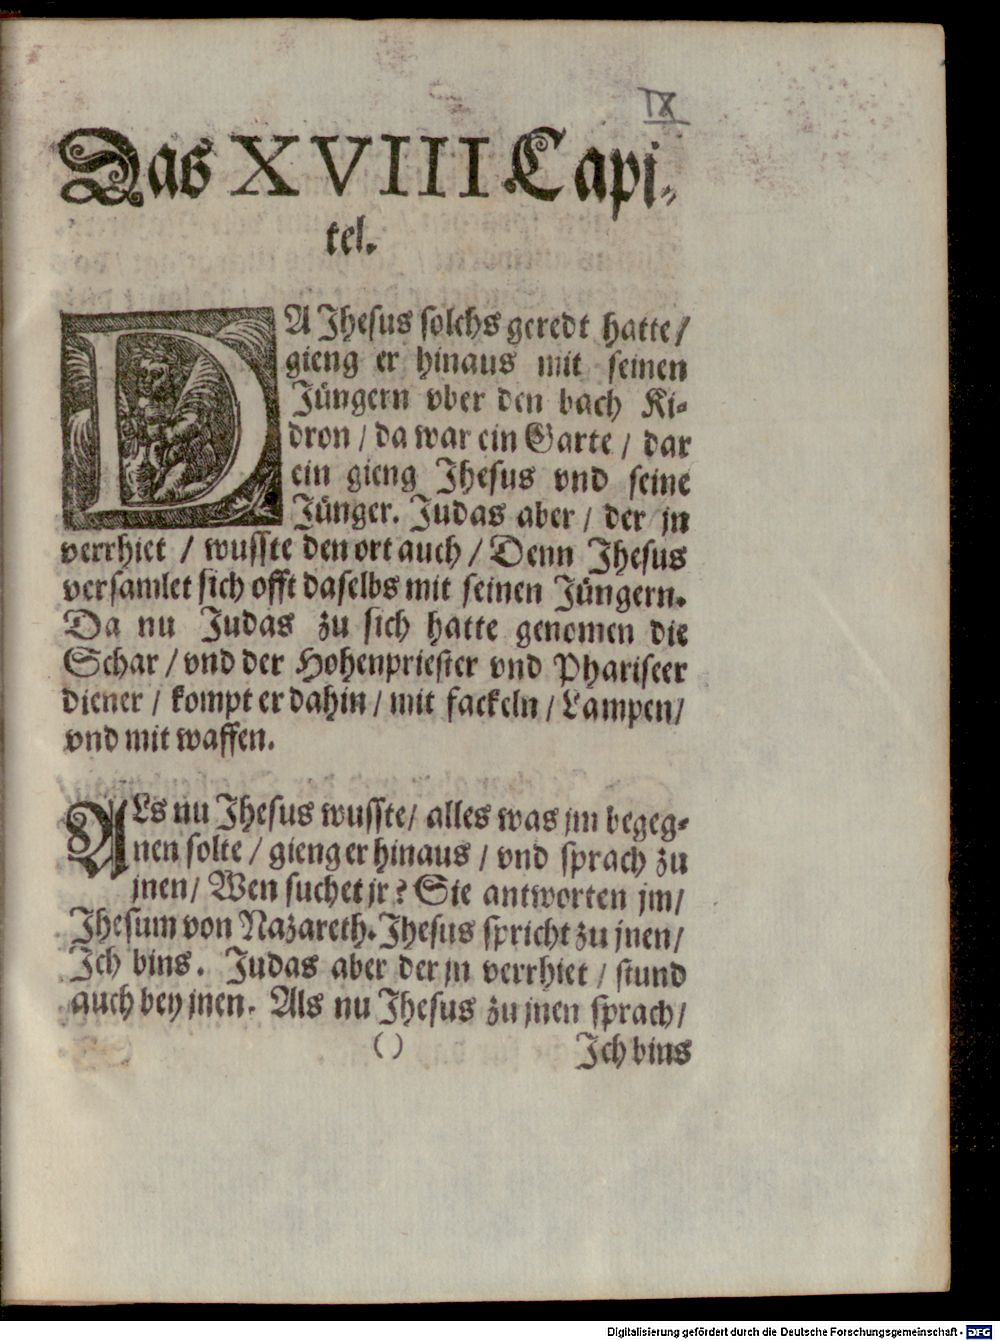 IX
Das XVIII Capi-
tel.
DA Jhesus solchs geredt hatte/
gieng er hinaus mit seinen
Jüngern vber den bach Ki-
dron / da war ein Garte / dar
ein gieng Jhesus vnd seine
Jünger. Judas aber / der jn
verrhiet / wusste den ort auch / Denn Jhesus
versamlet sich offt daselbs mit seinen Jüngern.
Da nu Judas zu sich hatte genomen die
Schar / vnd der Hohenpriester vnd Phariseer
diener / kompt er dahin / mit fackeln / Lampen/
vnd mit waffen.
ALs nu Jhesus wusste/ alles was jm begeg-
nen solte / gieng er hinaus / vnd sprach zu
jnen/ Wen suchet jr? Sie antworten jm/
Jhesum von Nazareth. Jhesus spricht zu jnen/
Ich bins. Judas aber der jn verrhiet / stund
auch bey jnen. Als nu Jhesus zu jnen sprach/
() Ich bins
Digitalisierung gefördert durch die Deutsche Forschungsgemeinschaft - DFG